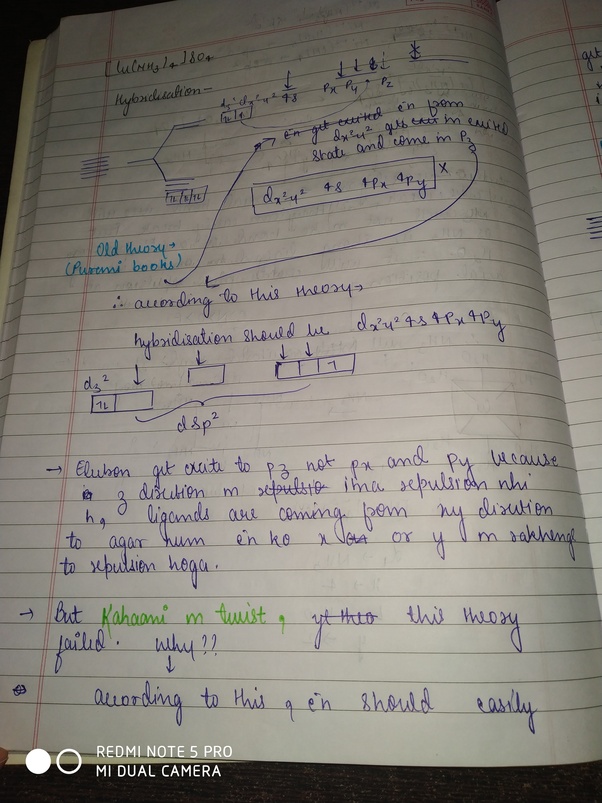 [Cu(NH₃)₄]SO₄
Hybridisation -
dz² dx²y² 4s Px Py Pz
→ e⁻n get excited e⁻n from
dx²y² gets excited
state and come in Pz
dx²y² 4s 4Px 4Py x
Old theory →
(Purani books)
∴ according to this theory →
hybridisation should be dx²y² 4s 4Px 4Py
dz²
dsp²
→ Elutron get excite to Pz not px and py because
z dirution m repulsio itna repulsion nhi
h, ligands are coming from xy dirution
to agar hum e⁻n ko x or y m rakhenge
to repulsion hoga.
→ But Kahaani m twist, yt theo this theory
failed. Why??
according to this, e⁻n should easily
REDMI NOTE 5 PRO
MI DUAL CAMERA